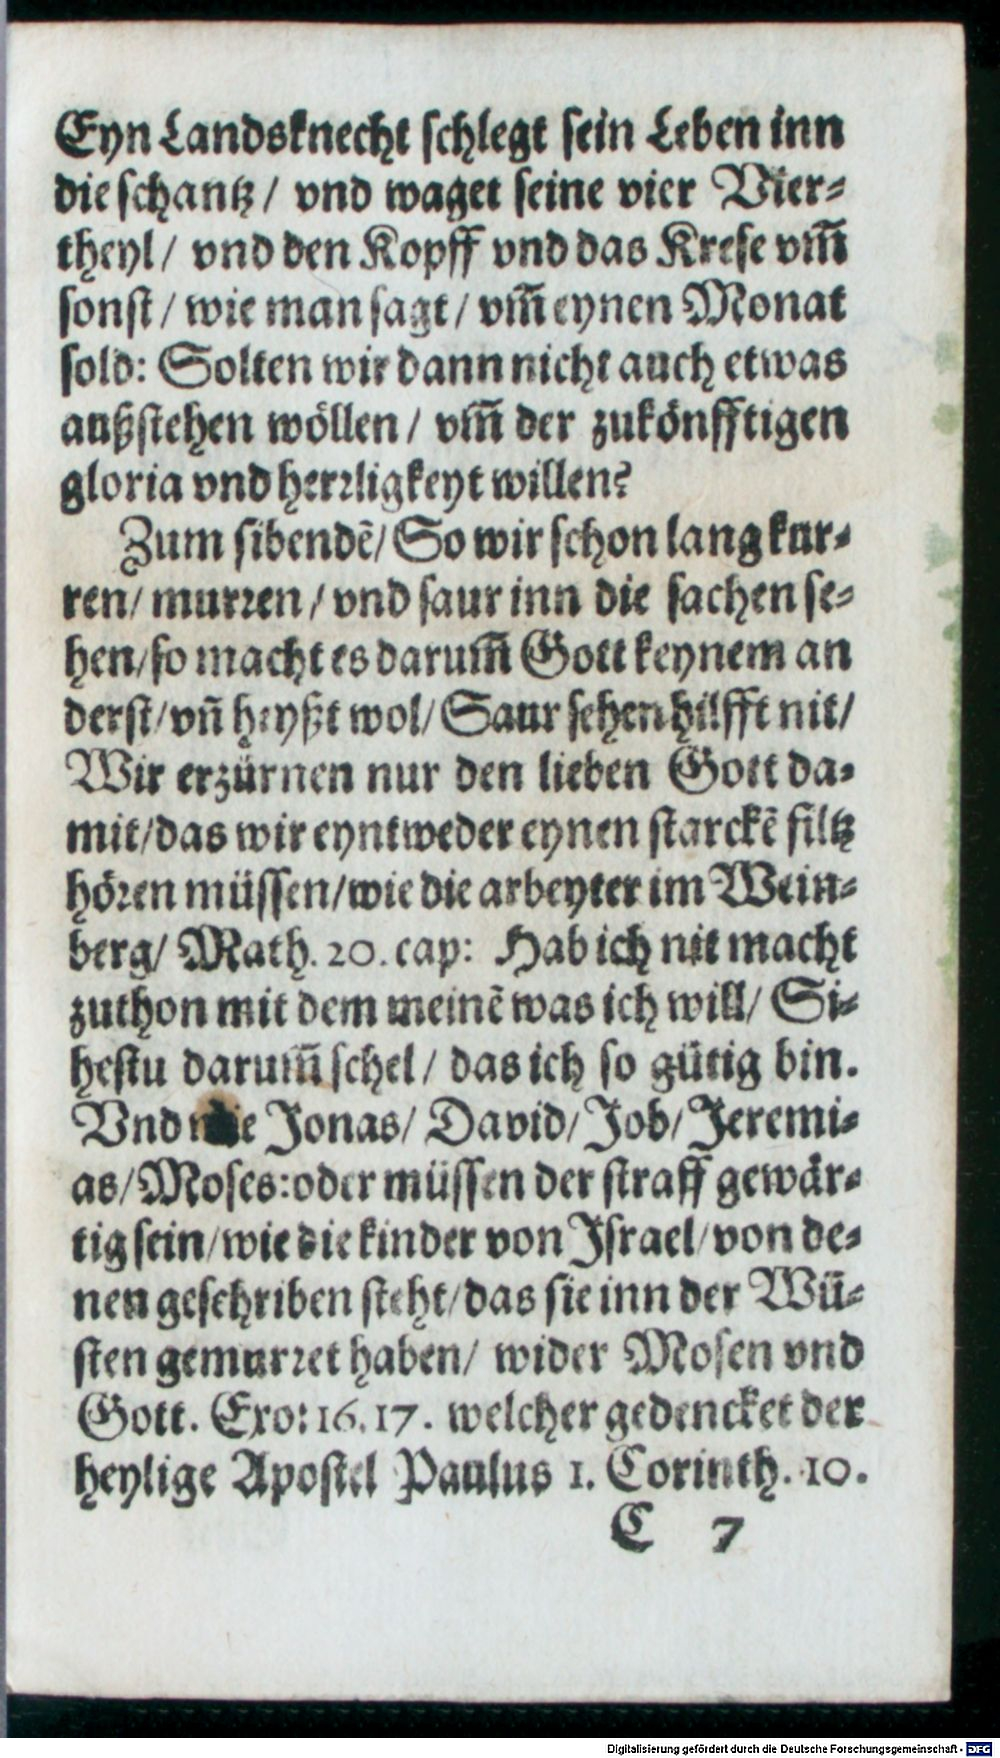 Eyn Landsknecht schlegt sein Leben inn
die schantz / vnd waget seine vier Vier-
theyl / vnd den Kopff vnd das Krese vm̃
sonst / wie man sagt / vm̃ eynen Monat
sold: Solten wir dann nicht auch etwas
außstehen wöllen / vm̃ der zukönfftigen
gloria vnd herrligkeyt willen?
Zum sibendẽ / So wir schon lang kur-
ren / murren / vnd saur inn die sachen se-
hen / so macht es darum̃ Gott keynem an
derst / vñ heyßt wol / Saur sehen hilfft nit /
Wir erzürnen nur den lieben Gott da-
mit / das wir eyntweder eynen starckẽ filtz
hören müssen / wie die arbeyter im Wein-
berg / Math. 20. cap: Hab ich nit macht
zuthon mit dem meinẽ was ich will / Si-
hestu darum̃ schel / das ich so gütig bin.
Vnd wie Jonas / David / Job / Jeremi-
as / Moses: oder müssen der straff gewär-
tig sein / wie die kinder von Israel / von de-
nen geschriben steht / das sie inn der Wü-
sten gemurret haben / wider Mosen vnd
Gott. Exo: 16. 17. welcher gedencket der
heylige Apostel Paulus 1. Corinth. 10.
C 7
Digitalisierung gefördert durch die Deutsche Forschungsgemeinschaft - DFG